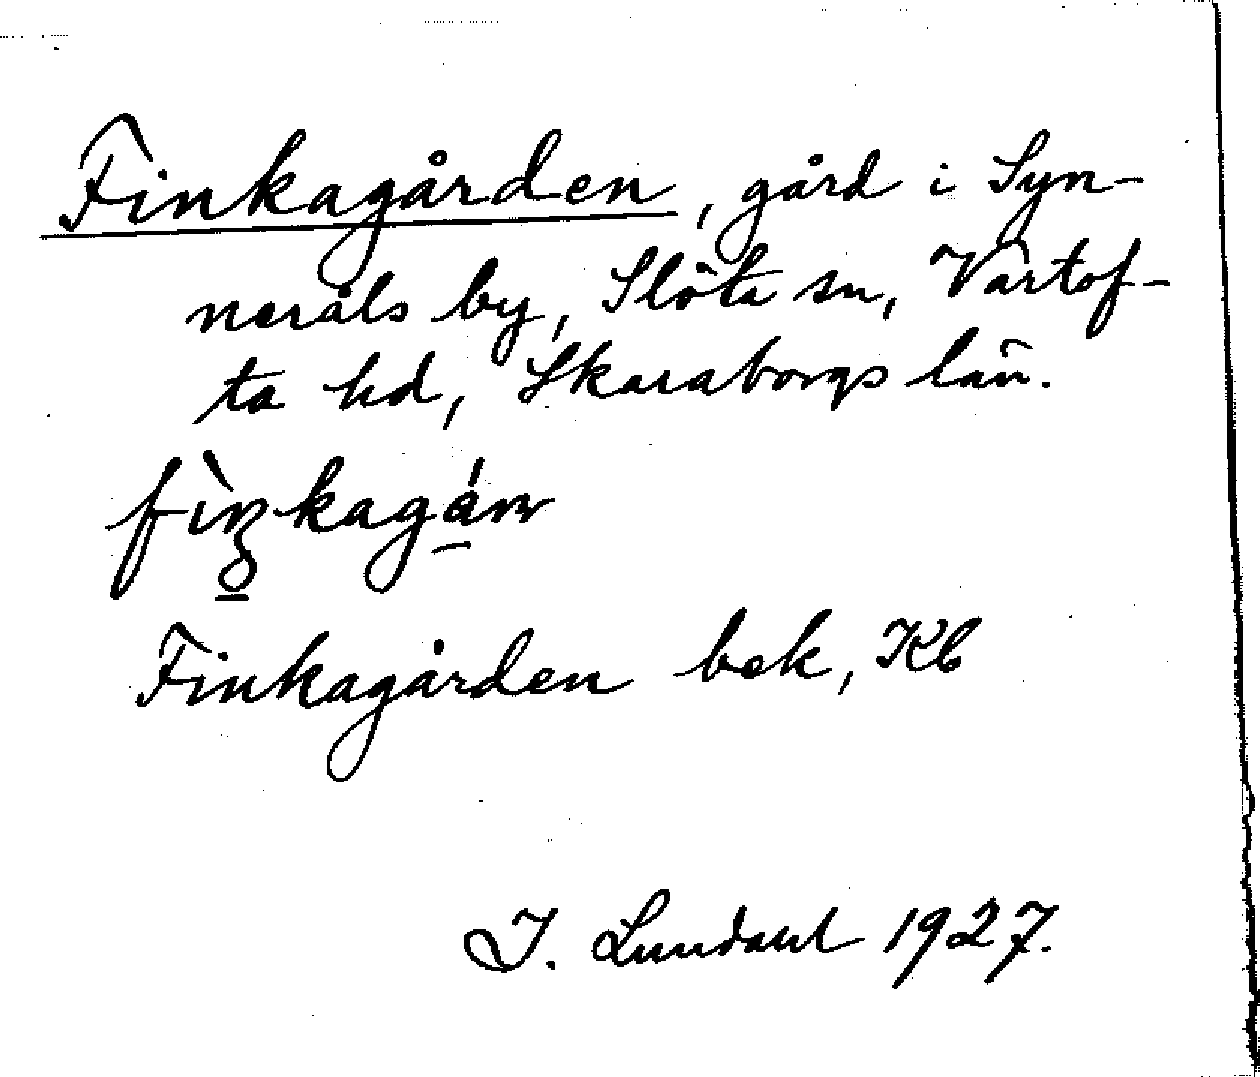 Finkagården, gård i Syn-
neråls by, Slöta sn, Vartof-
ta hd, Skaraborgs län.
fìŋkagá̠nr
Finkagården bek, Kb
I. Lundahl 1927.